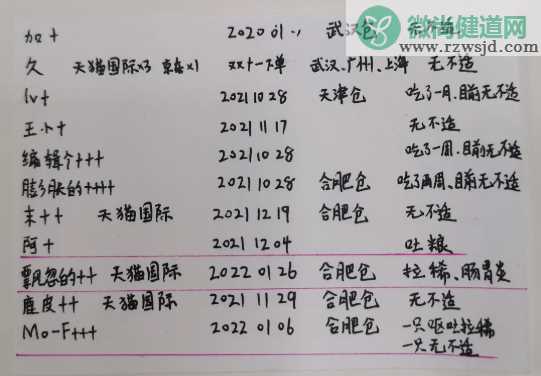 微尚健道网
www.rzwsjd.com
加+ 2020 01.. 武汉仓 无不适
久 天猫国际x3 京东x1 双十一下单 武汉、广州、上海 无不适
lv+ 2021 10 28 天津仓 吃了一月,目前无不适
王小+ 2021 11 17 无不适
编辑个+++ 2021 10 28 吃了一周,目前无不适
膨胀的++++ 2021 10 28 合肥仓 吃了两周、目前无不适
末++ 天猫国际 2021 12 19 合肥仓 无不适
阿+ 2021 12 04 吐粮
飘忽的++ 天猫国际 2022 01 26 合肥仓 拉稀、肠胃炎
鹿皮++ 天猫国际 2021 11 29 合肥仓 无不适
Mo-F+++ 2022 01 06 合肥仓 一只呕吐拉稀
一只无不适